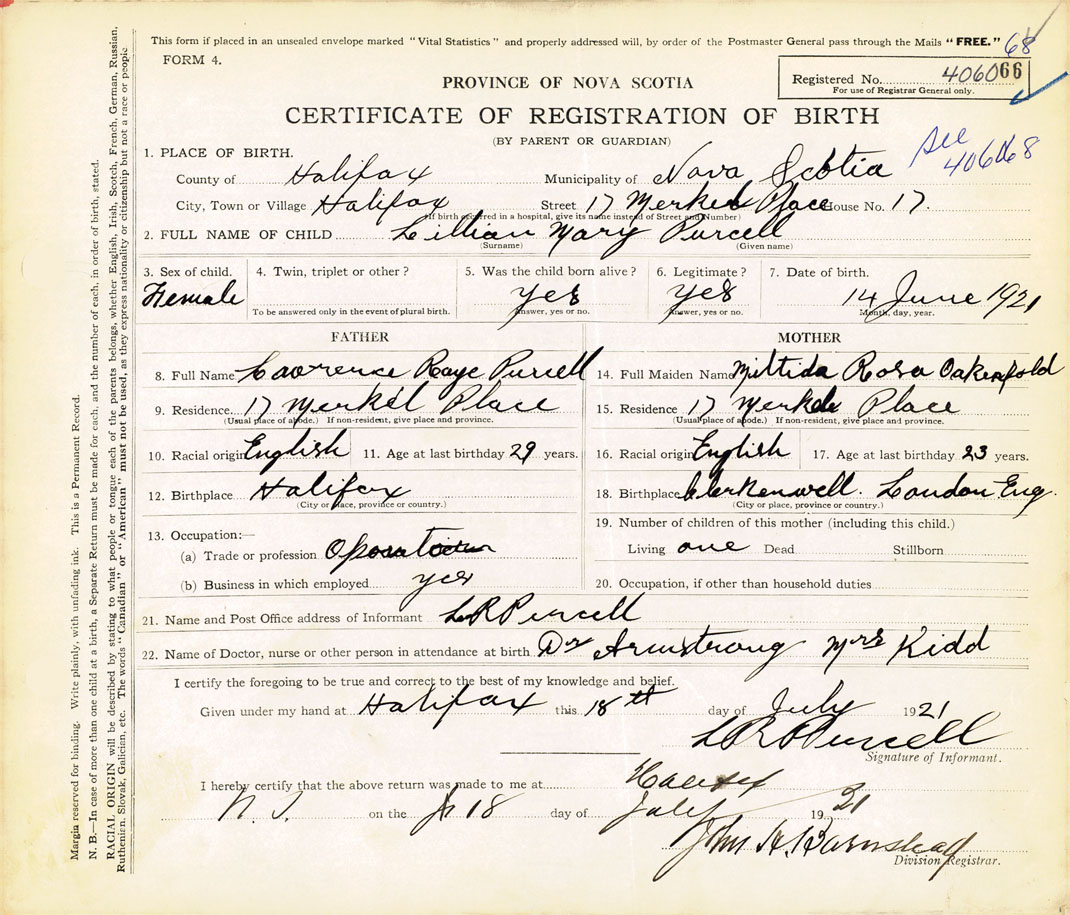 This form if placed in an unsealed envelope marked "Vital Statistics" and properly addressed will, by order of the Postmaster General pass through the Mails "FREE." 68
FORM 4.
Registered No. 406066
For use of Registrar General only.
PROVINCE OF NOVA SCOTIA
CERTIFICATE OF REGISTRATION OF BIRTH
(BY PARENT OR GUARDIAN)
See 406068
1. PLACE OF BIRTH.
County of Halifax Municipality of Nova Scotia
City, Town or Village Halifax Street 17 Merkel Place House No. 17.
(If birth occurred in a hospital, give its name instead of Street and Number)
2. FULL NAME OF CHILD Lillian Mary Purcell
(Surname) (Given name)
3. Sex of child. 4. Twin, triplet or other? 5. Was the child born alive? 6. Legitimate? 7. Date of birth.
Female yes yes 14 June 1921
To be answered only in the event of plural birth. Answer, yes or no. Answer, yes or no. Month, day, year.
FATHER MOTHER
8. Full Name Lawrence Raye Purcell 14. Full Maiden Name Miltida Rosa Oakenfold
9. Residence 17 Merkel Place 15. Residence 17 Merkel Place
(Usual place of abode.) If non-resident, give place and province. (Usual place of abode.) If non-resident, give place and province.
10. Racial origin English 11. Age at last birthday 29 years. 16. Racial origin English 17. Age at last birthday 23 years.
12. Birthplace Halifax 18. Birthplace Clerkenwell. London Eng.
(City or place, province or country.) (City or place, province or country.)
13. Occupation:— 19. Number of children of this mother (including this child.)
(a) Trade or profession Living one Dead Stillborn
(b) Business in which employed yes 20. Occupation, if other than household duties
21. Name and Post Office address of Informant L R Purcell
22. Name of Doctor, nurse or other person in attendance at birth Dr Armstrong Mrs Kidd
I certify the foregoing to be true and correct to the best of my knowledge and belief.
Given under my hand at Halifax this 18th day of July 1921
L R Purcell
Signature of Informant.
I hereby certify that the above return was made to me at Halifax
N.S. on the 18 day of July 1921
John H. Barnstead
Division Registrar.
Margin reserved for binding. Write plainly, with unfading ink. This is a Permanent Record.
N. B.—In case of more than one child at a birth, a Separate Return must be made for each, and the number of each, in order of birth, stated.
RACIAL ORIGIN will be described by stating to what people or tongue each of the parents belongs, whether English, Irish, Scotch, French, German, Russian,
Ruthenian, Slovak, Galician, etc. The words "Canadian" or "American" must not be used, as they express nationality or citizenship but not a race or people